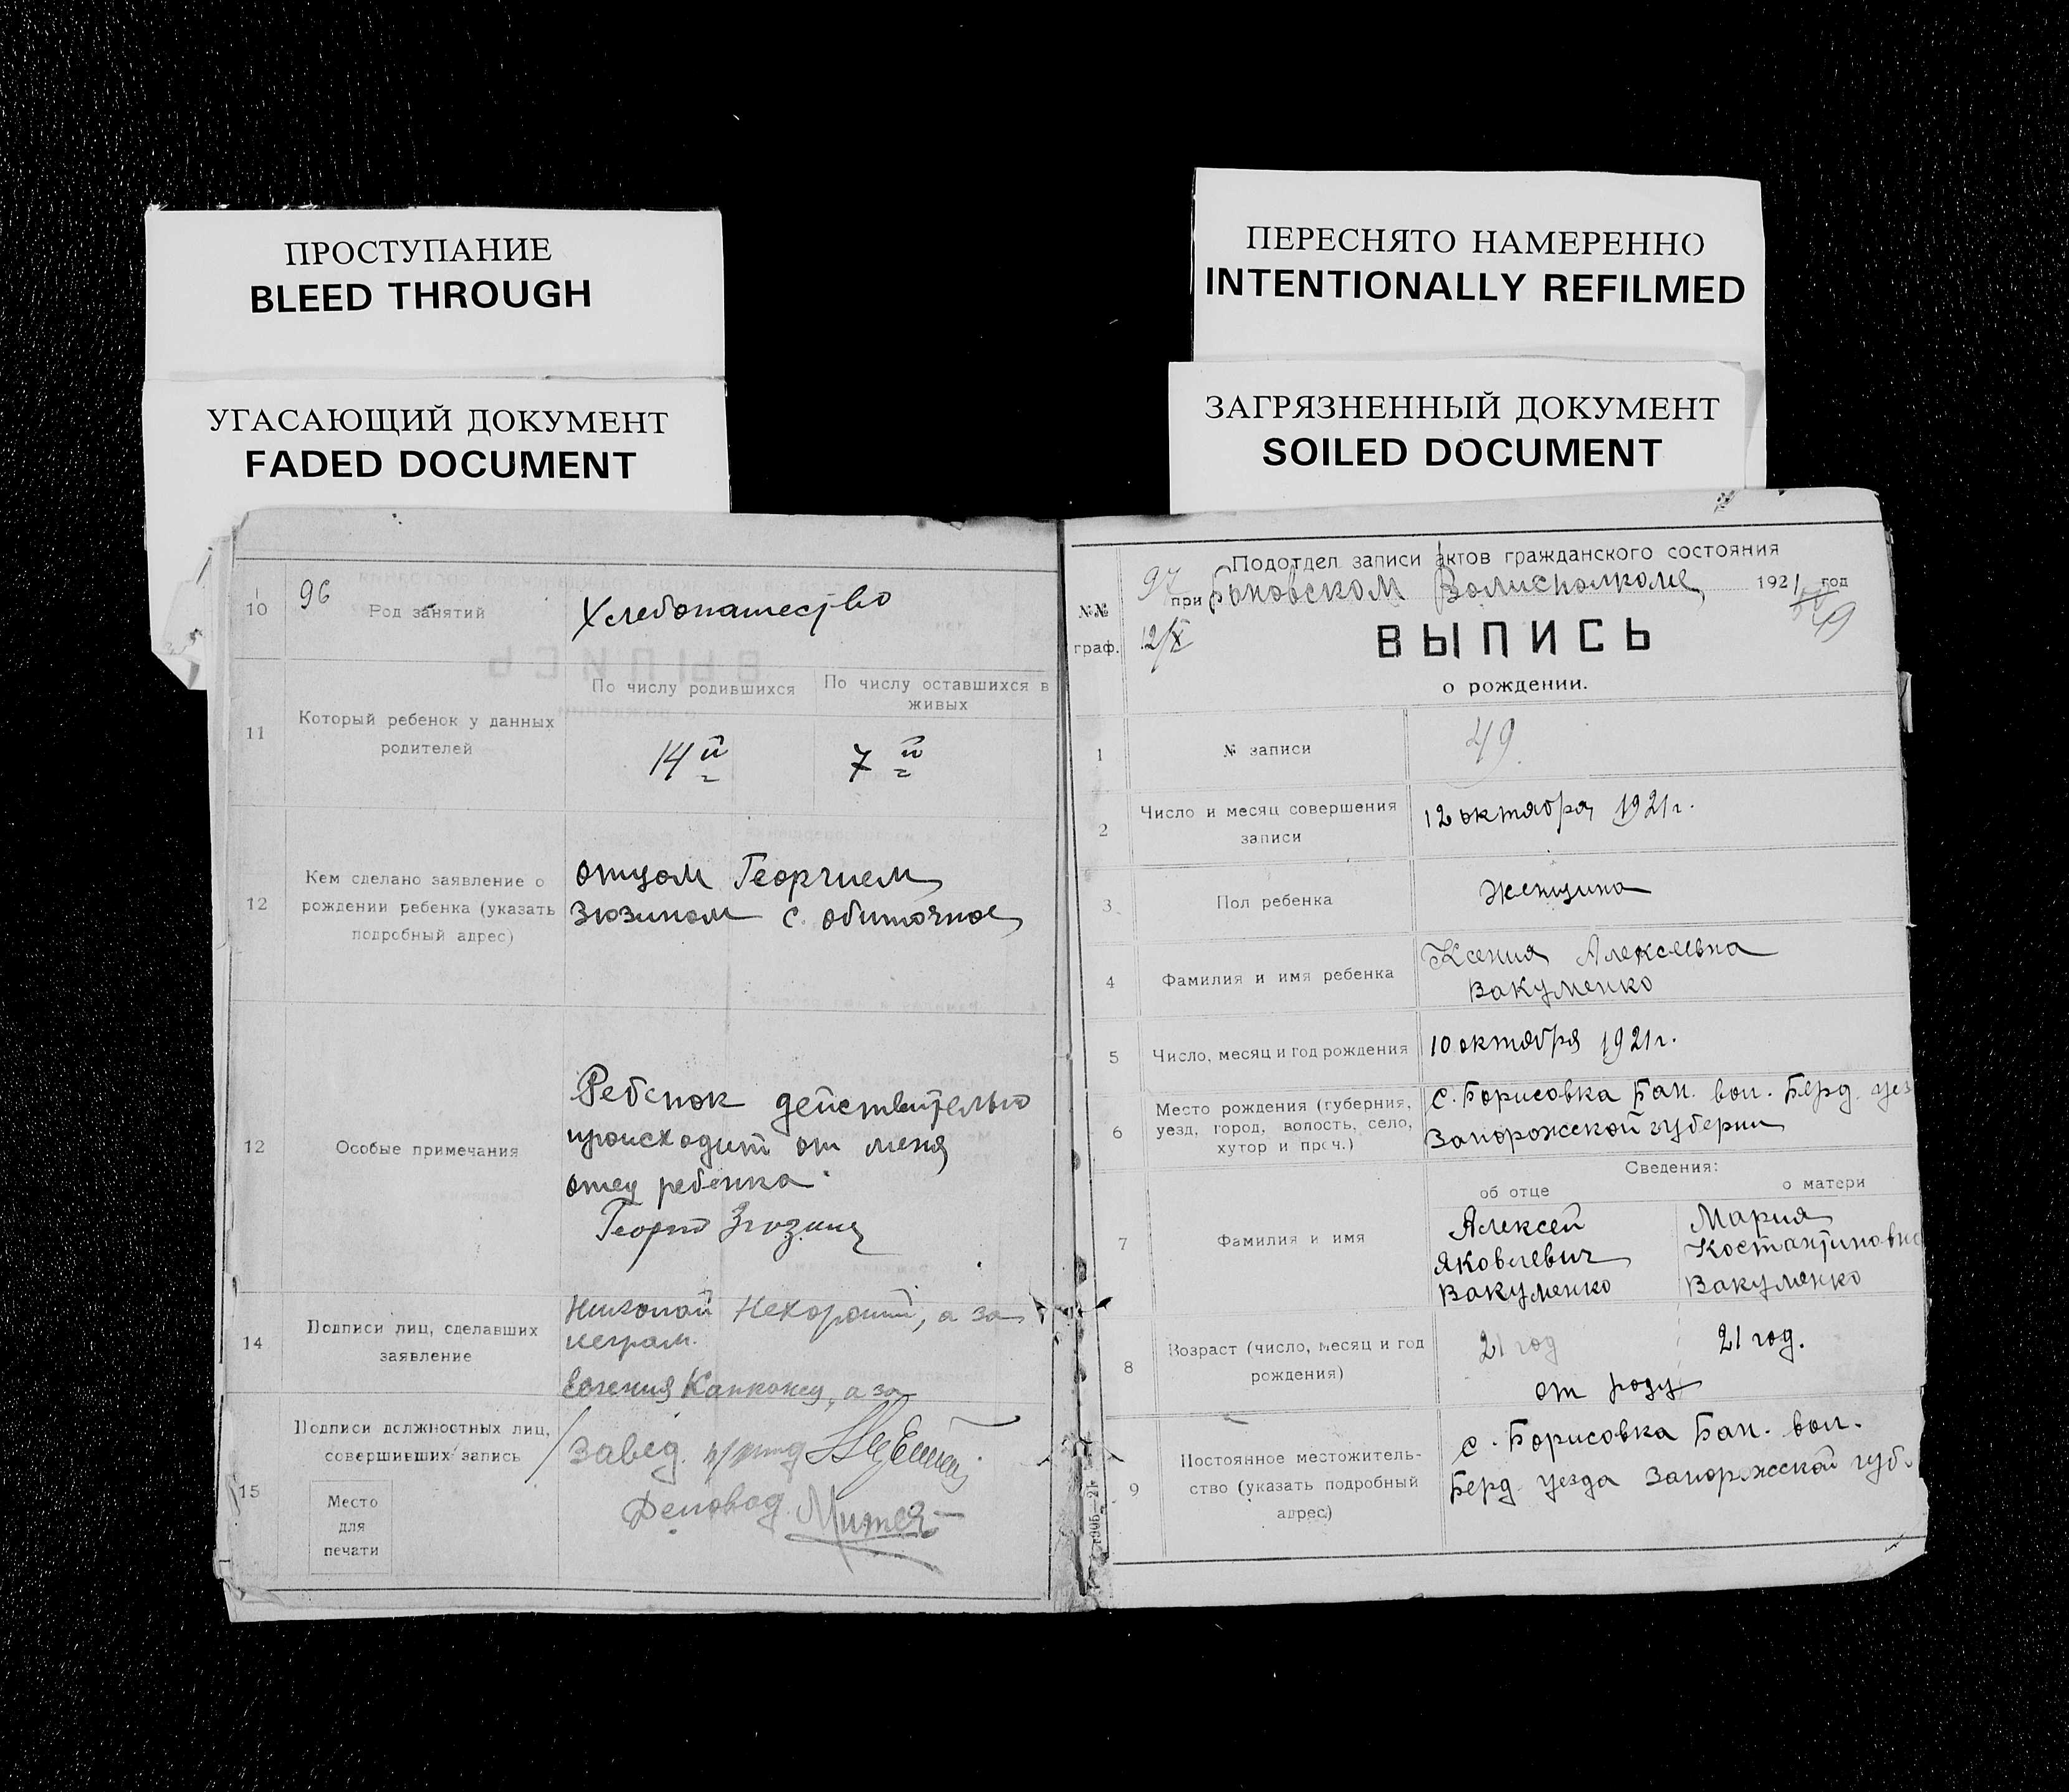 ПРОСТУПАНИЕ
BLEED THROUGH
УГАСАЮЩИЙ ДОКУМЕНТ
FADED DOCUMENT
ПЕРЕСНЯТО НАМЕРЕННО
INTENTIONALLY REFILMED
ЗАГРЯЗНЕННЫЙ ДОКУМЕНТ
SOILED DOCUMENT
96
10 Род занятий Хлебопашество
По числу родившихся По числу оставшихся в
живых
11 Который ребенок у данных
родителей
14й 7й
12 Кем сделано заявление о
рождении ребенка (указать
подробный адрес)
отцом Георгием
Зюзином с. Обиточное
12 Особые примечания
Ребенок действительно
происходит от меня
отец ребенка
Георгий Зюзин
14 Подписи лиц, сделавших
заявление
Николай Нехороший, а за
неграм.
Евгения, а за
15 Подписи должностных лиц,
совершивших запись
Завед. п/отд
Деловод
Место
для
печати
Подотдел записи актов гражданского состояния
97 при Волисполкоме 1921 год
49
№№
граф.
12/X
ВЫПИСЬ
о рождении.
1 № записи 49.
2 Число и месяц совершения
записи
12 октября 1921 г.
3 Пол ребенка женщина
4 Фамилия и имя ребенка
Ксения Алексеевна
Вакуменко
5 Число, месяц и год рождения 10 октября 1921 г.
6 Место рождения (губерния,
уезд, город, волость, село,
хутор и проч.)
С. Борисовка Бан. вол. Берд. уез
Запорожской губернии
Сведения:
об отце о матери
7 Фамилия и имя
Алексей
Яковлевич
Вакуменко
Мария
Костантиновна
Вакуменко
8 Возраст (число, месяц и год
рождения)
21 год 21 год.
от роду
9 Постоянное местожитель-
ство (указать подробный
адрес)
с. Борисовка Бан. вол.
Берд. уезда Запорожской губ.